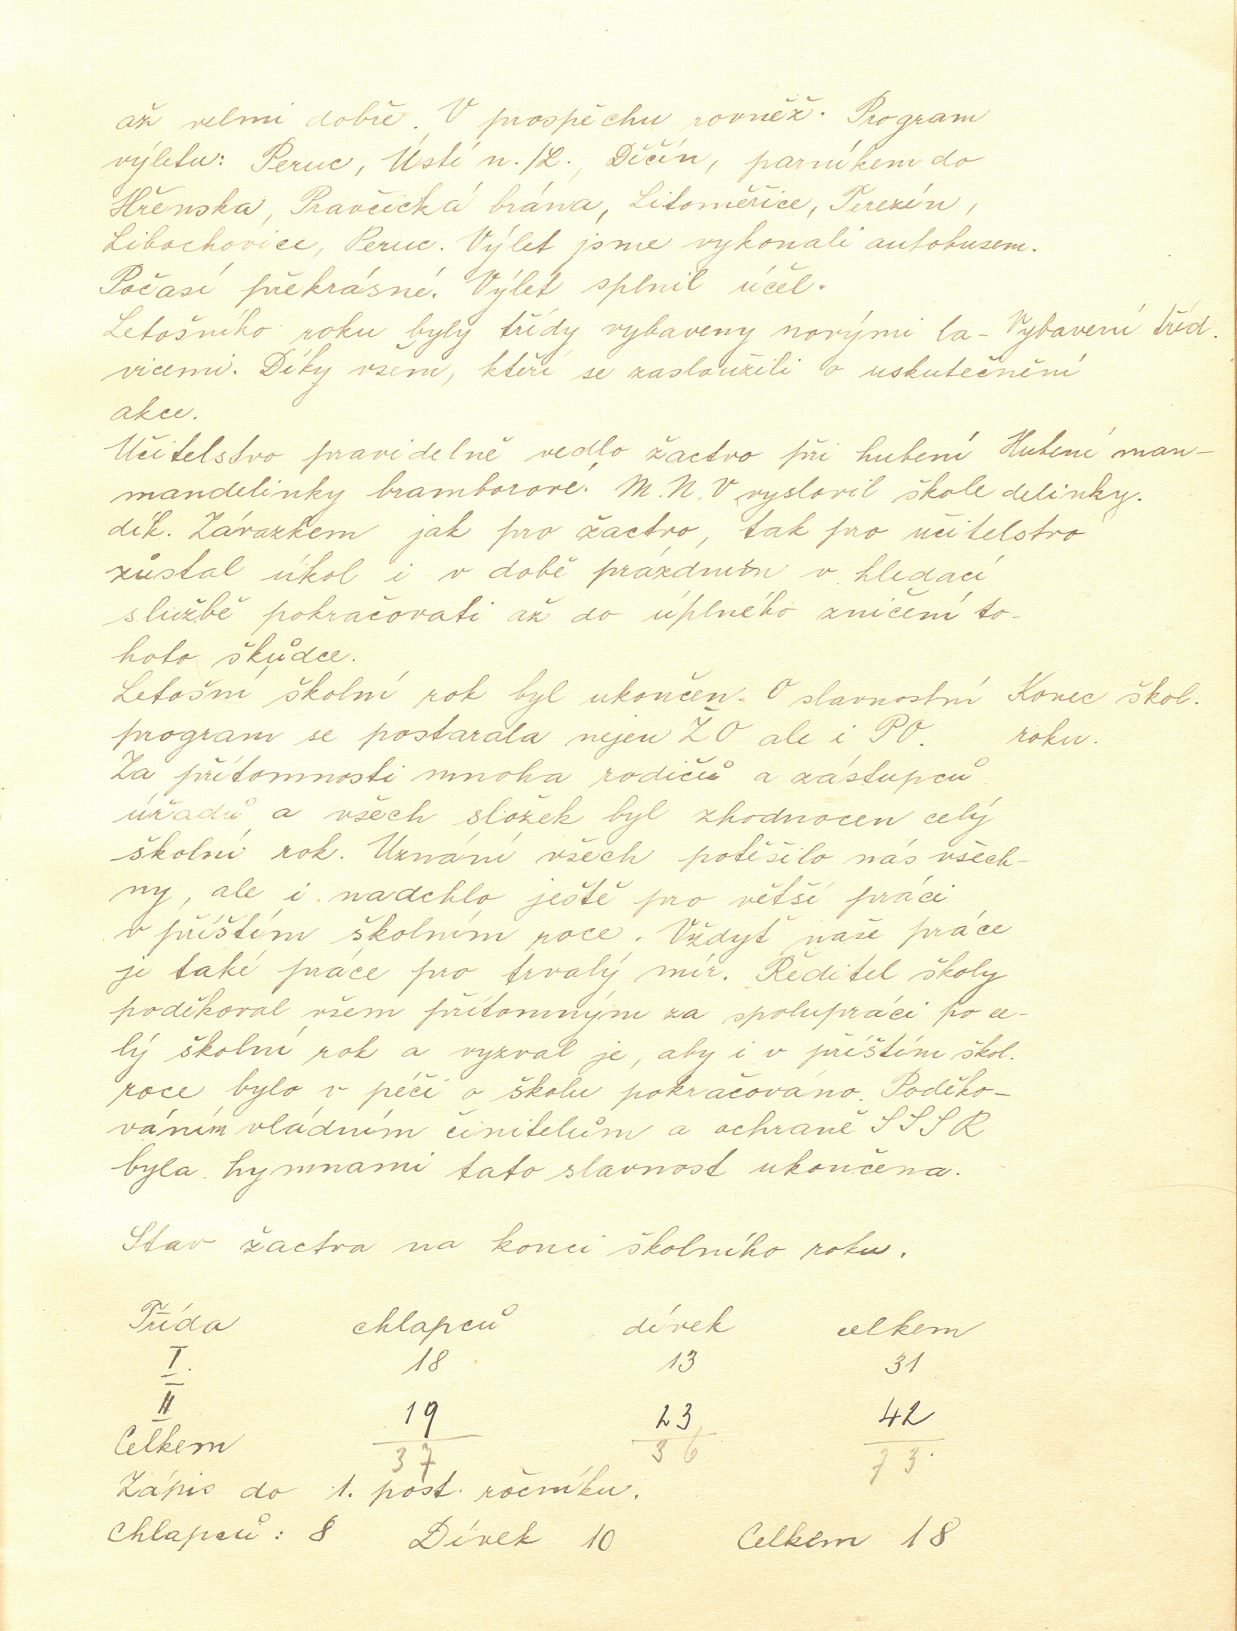 až velmi dobře. V prospěchu rovněž. Program
výletu: Peruc, Ústí n./L., Děčín, parníkem do
Hřenska, Pravčická brána, Litoměřice, Terezín,
Libochovice, Peruc. Výlet jsme vykonali autobusem.
Počasí překrásné. Výlet splnil účel.
Letošního roku byly třídy vybaveny novými la- Vybavení tříd.
vicemi. Díky všem, kteří se zasloužili o uskutečnění
akce.
Učitelstvo pravidelně vedlo žactvo při hubení Hubení man-
mandelinky bramborové. M.N.V vyslovil škole delinky.
dík. Závazkem jak pro žactvo, tak pro učitelstvo
zůstal úkol i v době prázdnin v hledací
službě pokračovati až do úplného zničení to-
hoto škůdce.
Letošní školní rok byl ukončen. O slavnostní Konec škol.
program se postarala nejen ŽO ale i PO. roku.
Za přítomnosti mnoha rodičů a zástupců
úřadů a všech složek byl zhodnocen celý
školní rok. Uznání všech potěšilo nás všech-
ny, ale i nadchlo ještě pro větší práci
v příštím školním roce. Vždyť naše práce
je také práce pro trvalý mír. Ředitel školy
poděkoval všem přítomným za spolupráci po ce-
lý školní rok a vyzval je, aby i v příštím škol.
roce bylo v péči o školu pokračováno. Poděko-
váním vládním činitelům a ochraně SSSR
byla hymnami tato slavnost ukončena.
Stav žactva na konci školního roku.
Třída chlapců dívek celkem
I. 18 13 31
II 19 23 42
Celkem 37 36 73.
Zápis do 1. post. ročníku.
Chlapců: 8 Dívek 10 Celkem 18